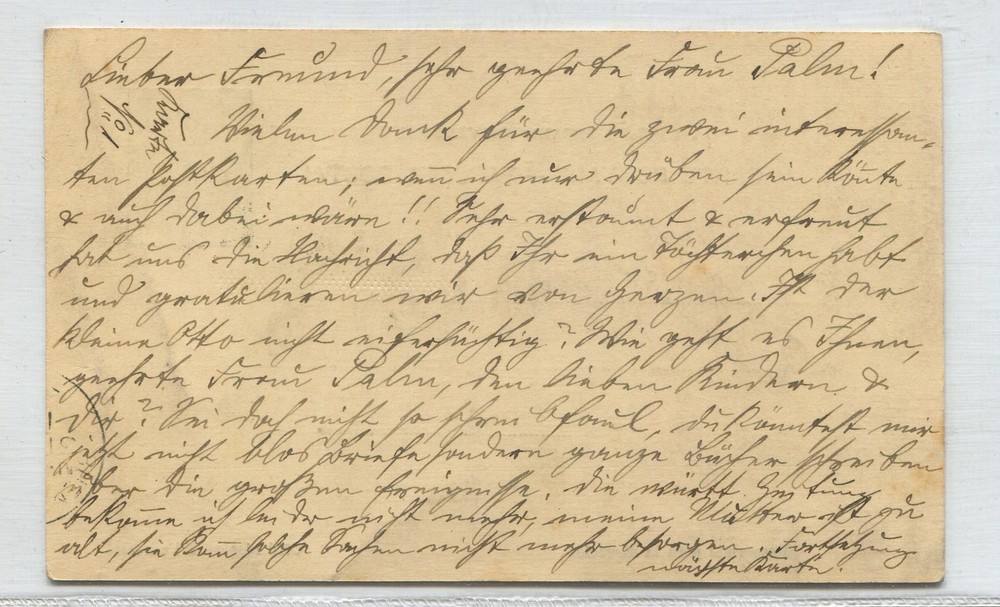 Lieber Freund, sehr geehrte Frau Palm!
Vielen Dank für die zwei interessan-
ten Postkarten; wenn ich nur drüben sein könnte
& auch dabei wäre!! Sehr erstaunt & erfreut
hat uns die Nachricht, daß Ihr ein Töchterchen habt
und gratulieren wir von Herzen. Ist der
kleine Otto nicht eifersüchtig? Wie geht es Ihnen,
geehrte Frau Palm, den lieben Kindern &
Dir? Sei doch nicht so schreibfaul, du könntest mir
jetzt nicht blos Briefe sondern ganze Bücher schreiben
über die großen Ereignisse. Die württ. Zeitung
bekomme ich leider nicht mehr, meine Mutter ist zu
alt, sie kann solche Sachen nicht mehr besorgen. Fortsetzung
nächste Karte.